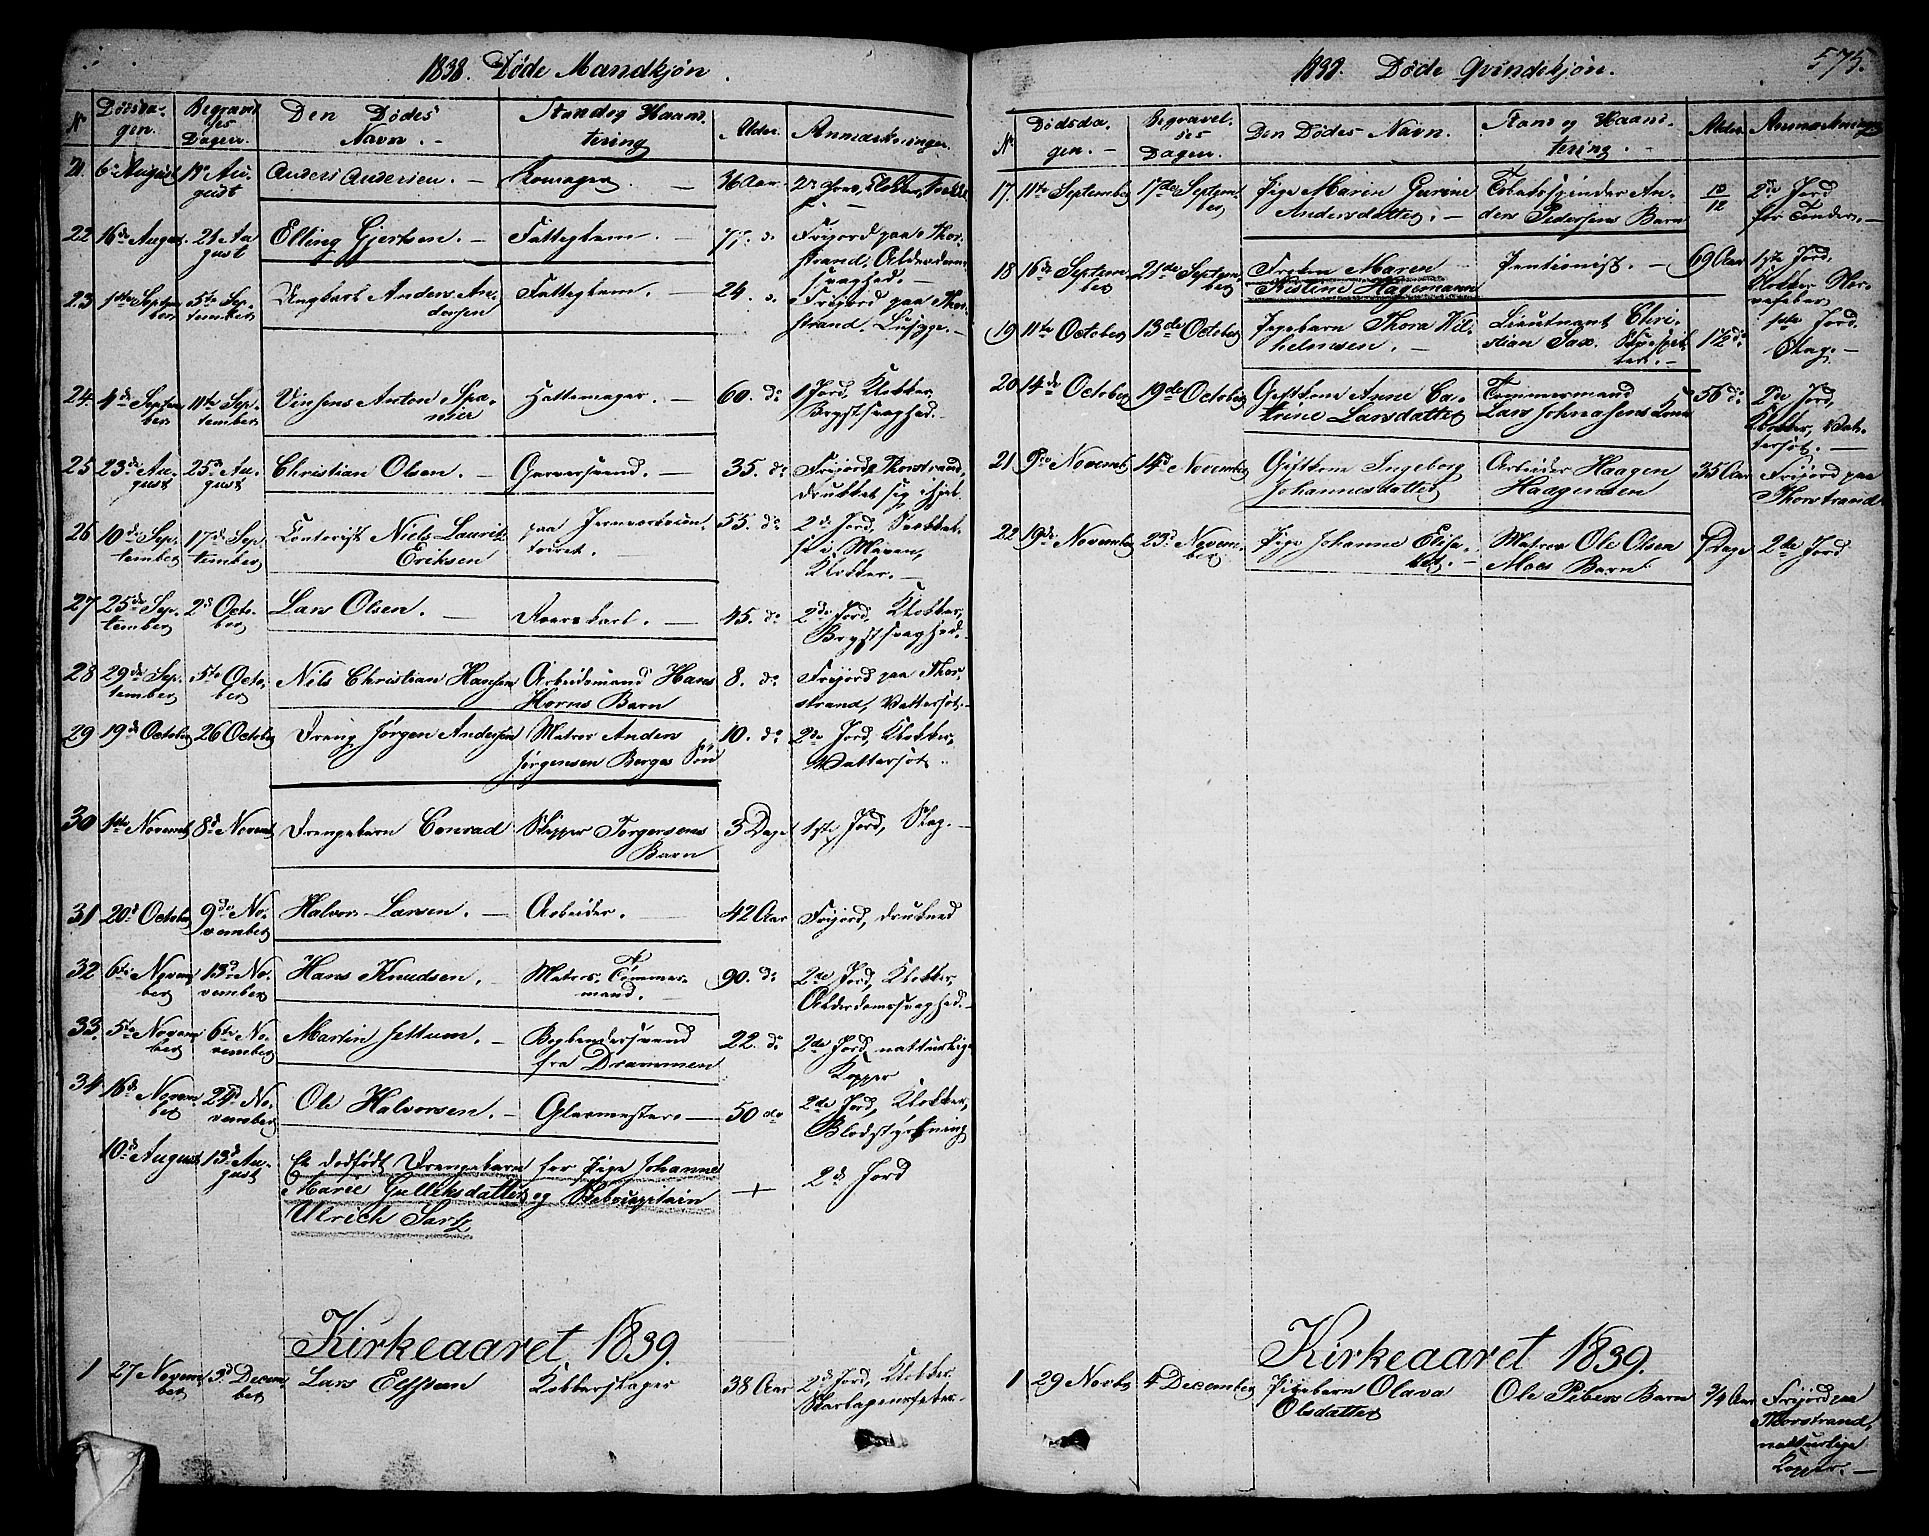 1838. Døde Mandkjøn.
No
Dødsda-
gen.
Begravel
ses
Dagen.
Den Dødes
Navn. -
Stand og Haand
tering
Alder.
Anmærkninger.
21. 6te August 11 Au-
gust
Anders Andersen. -
36 Aar.
22 16de August 21 Au
gust
Elling Gjertsen. -
Fattiglem. -
77. do
Frijord paa Thor-
strand, Alderdoms
svaghed. -
23 1ste Septem
ber
5te Sep-
tember
Ungkarl Anders An-
dersen
Fattiglem. -
24. do
Frijord paa Thor-
strand.
24. 4de Septem
ber
11te Sep-
tember
Vinsens Anton Spa-
nier
Hattemager. -
60. do
1 Jord, Klokker,
Brystsvaghed.
25 23de Au-
gust
25d Au-
gust
Christian Olsen. -
Garversvend. -
35. do
Frijord Thorstrand,
druknet sig
26 10de Sep-
tember
17d Sep-
tember
Contorist Niels Laurits
Eriksen
paa
55. do
2de Jord,
Klokker. -
27 25de Sep-
tember
2d Octo-
ber
Lars Olsen. -
45. do
2de Jord, Klokker,
Brystsvaghed. -
28 29de Sep-
tember
5te Octo-
ber
Nils Christian Hansen
Arbeidsmand Hans
Horns Barn
8. do
Frijord paa Thor-
strand, Vattersot. -
29 19de October 26 October
Dreng Jørgen Andersen
Matros Anders
Jørgensen Berges Søn
10. do
2de Jord, Klokker,
Vattersot. -
30 1ste Novemb 8d Novemb
Drengebarn Conrad
Skipper Torgersens
Barn
3 Dage
1ste Jord, Slag. -
31 20d October 9de No-
vember
Halvor Larsen. -
Arbeider. -
42 Aar
Frijord, drukned
32 6te Novem
ber
13d No-
vember
Hans Knudsen. -
Matros, Tømmer-
mand. -
90. do
2de Jord, Klokker,
Alderdomssvaghed. -
33. 5te Novem
ber
6te No-
vember
Martin Jettum. -
Bogbindersvend
fra Drammen
22. do
2de Jord naturlige
Kopper
34 16d Novem
ber
24d No-
vember
Ole Halvorsen. -
Glarmester. -
50 do
2de Jord, Klokker,
Blodstyrtning
10d August 13d Au-
gust
Et dødfødt Drengebarn for Pige Johanne
Marie Gulliksdatter og
Ulrich Sartz
+
2d Jord
Kirkeaaret 1839.
1 27 Novem
ber
3d Decem-
ber
Lars
Kobberslager
38 Aar
2d Jord, Klokker.
Skarlagensfeber.
1838. Døde Qvindekjøn.
575.
No
Dødsda-
gen. -
Begravel
ses
Dagen.
Den Dødes Navn.
Stand og Haand-
tering. -
Alder.
Anmærkninger
17. 11te September 17de Septem-
ber
Pige Marin Gurine
Andersdatter. -
Tobaksspinder An-
ders Pedersens Barn
10/12
2de Jord
for Tænder. -
18 16de Septem
ber
21de Septem
ber
Frøken Maren
Kistine Hagemann
Pentionist. -
69 Aar
1ste Jord,
Klokker, Ner-
vefeber
19 11te October 13de October
Pigebarn Thora Wil-
helmsen. -
Lieutnant Chri-
stian Sax.
1 1/2 do
1ste Jord.
Slag. -
20 14de October 19de October
Giftkone Anne Ca-
trine Larsdatter
Tømmermand
Lars Johnasens Kone
56 do
2de Jord,
Klokker, Vat-
tersot. -
21 9de Novemb 14d November
Giftkone Ingeborg
Johannesdatter
Arbeider Haagen
Haagensen
35 Aar
Frijord paa
Thorstrand
22 19de November 23d Novem-
ber
Pige Johanne Elisa-
bet. -
Matros Ole Olsen
Moes Barn
7 Dage
2de Jord
Kirkeaaret 1839.
1 29 Novbr 4 December
Pigebarn Olava
Olsdatter
Ole Pibers Barn
3/4 Aar
Frijord paa
Thorstrand,
naturlige
Kopper. -